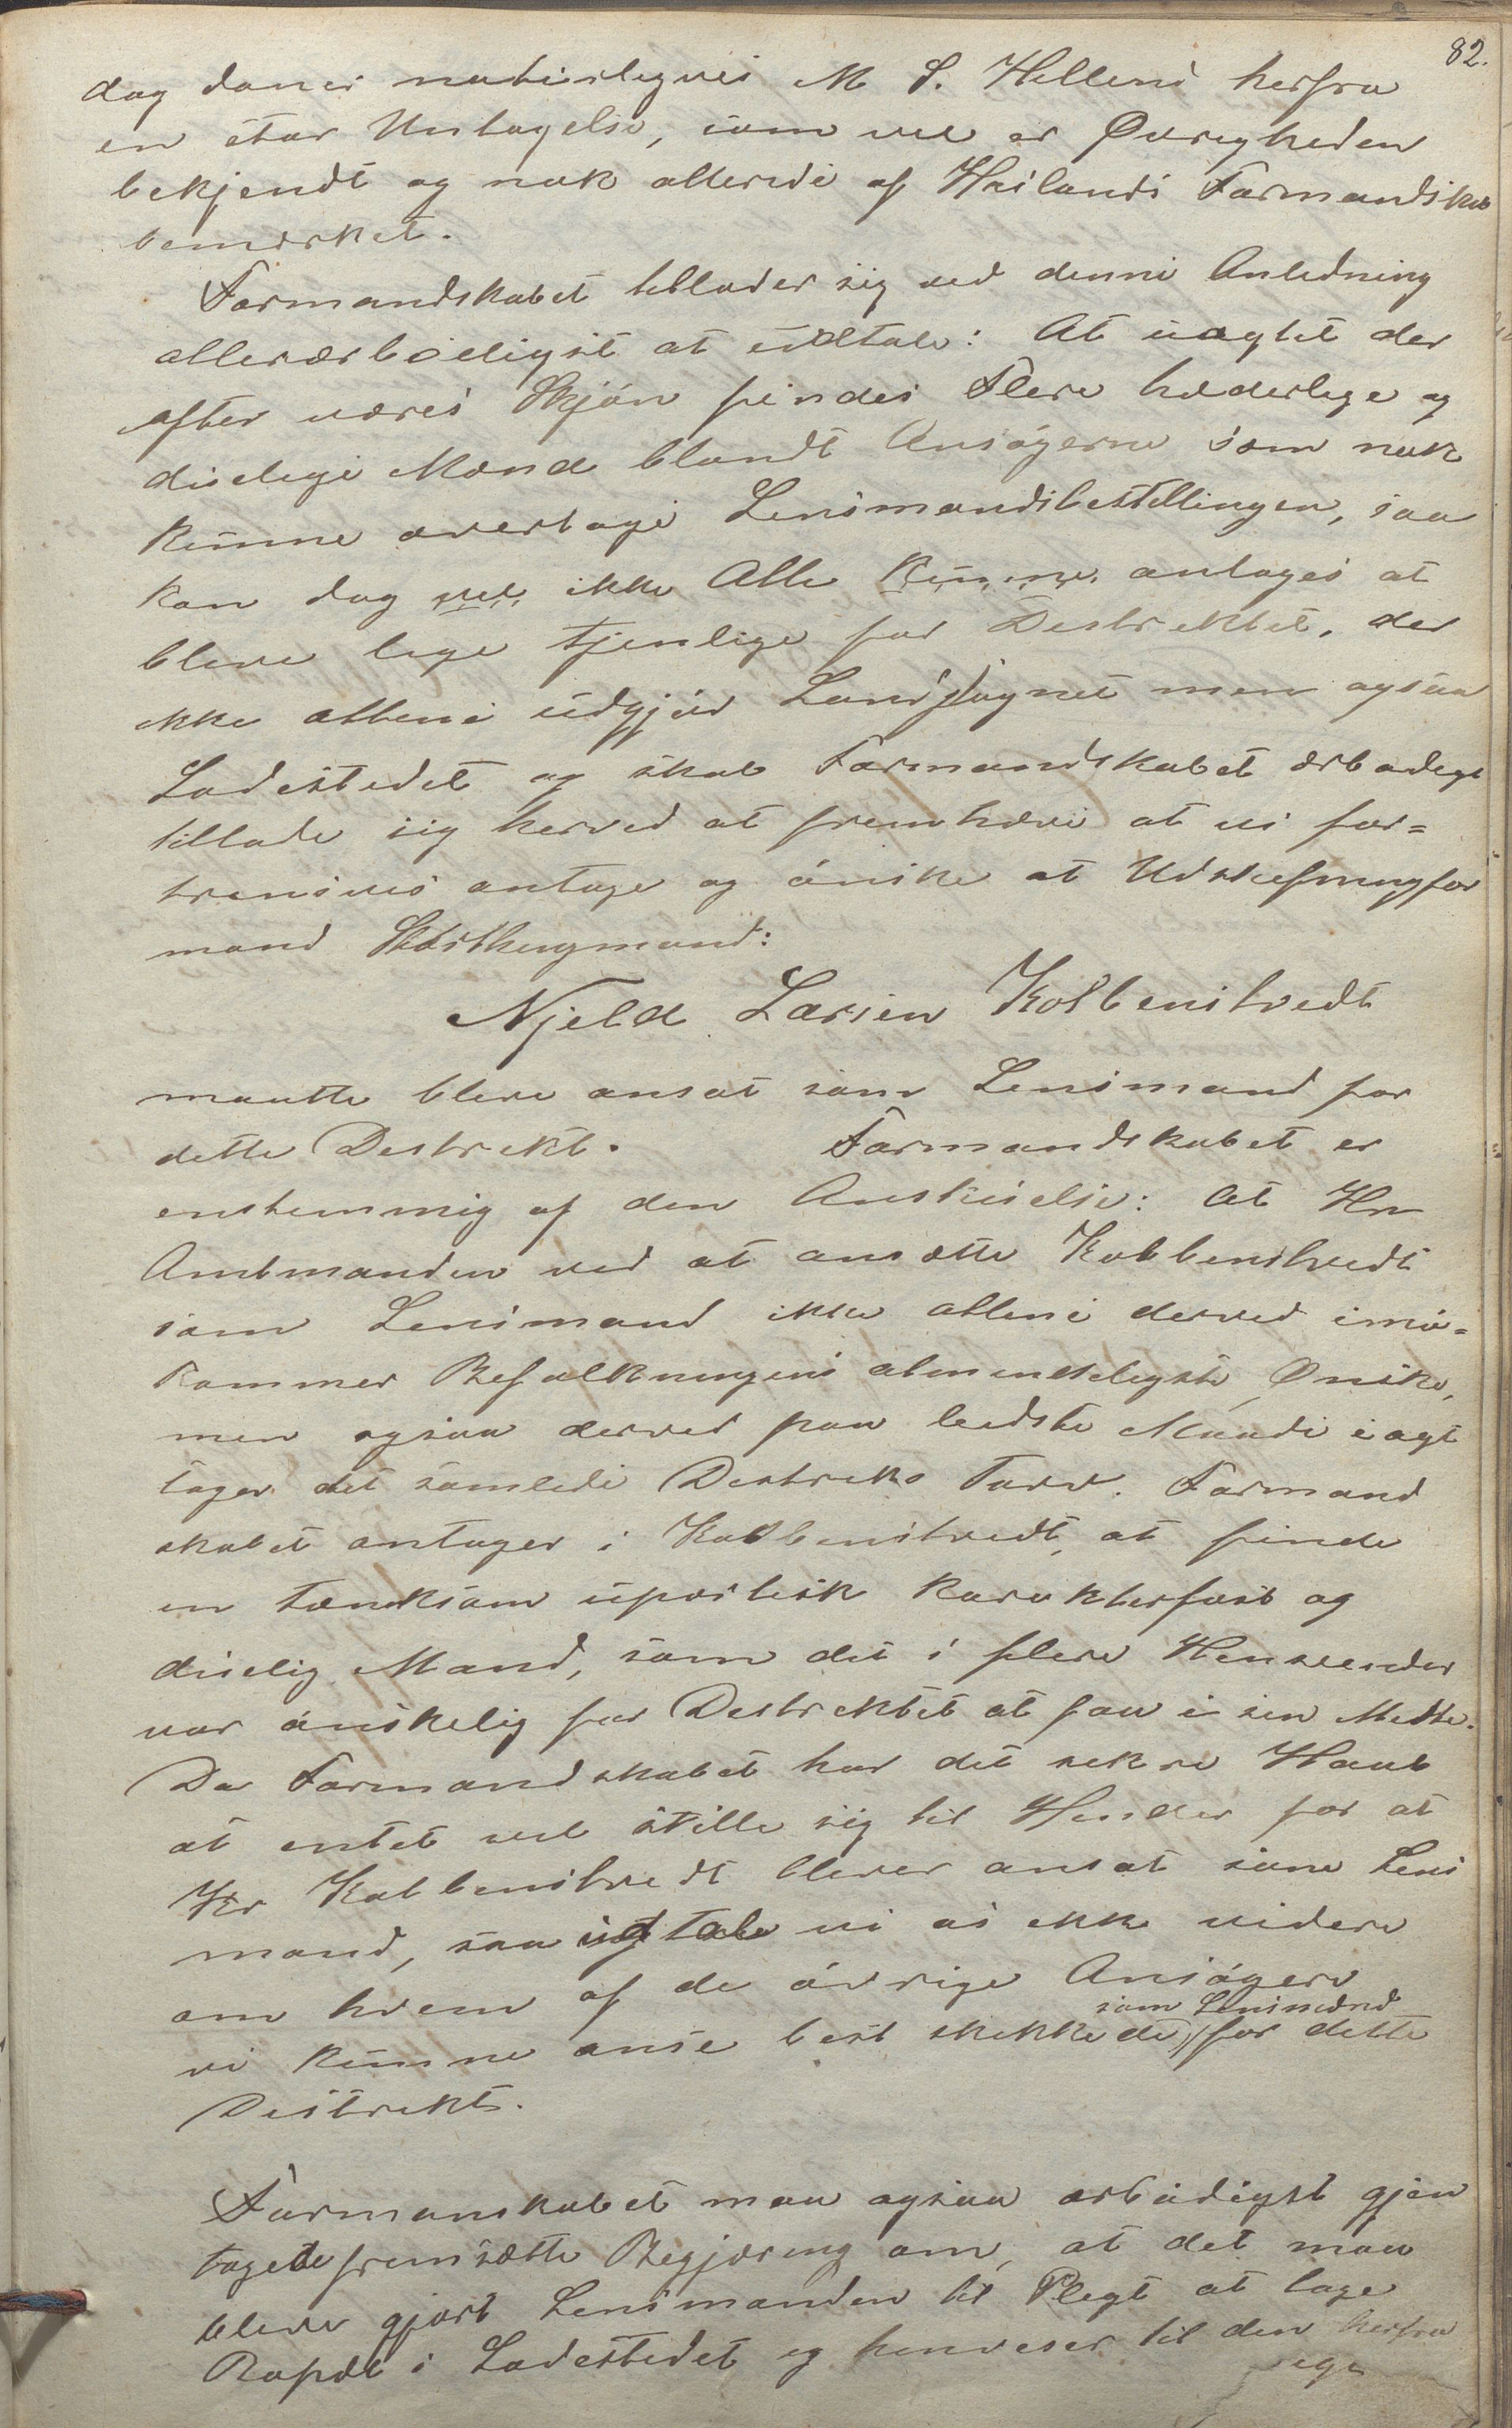 82.
dog daner naturlegvis M S. Helleni herfra
en stor Untagelse, som vel er Øvregheden
bekjendt og nok allerede af Heilands Formandskab
bemærket.
Formandskabet tillader sig ved denne Anledning
allerærbødigst at udtale: At uagtet der
efter vores Skjøn findes Flere hæderlege og
duelege Mænd blandt Ansøgerne som nok
kunne overtage Lensmandsbestillingen, saa
kan dog vel ikke Alle kunne antages at
bleve lige tjenlige for Destrektet, der
ikke allene udgjør Landsognet men ogsaa
Ladestedet og skal Formandskabet ærbødigt
tillade sig herved at fremhæve at vi for=
trensves antage og ønske at Udskiftningsfor
mand Storthingmand:
Njeld Larsen Kolbenstvedt
maatte bleve ansat som Lensmand for
dette Destrekt. Formandskabet er
enstemmig af den Anskuelse: At Hr
Amtmanden ved at ansætte Kolbenstvedt
som Lensmand ikke allene derved imø=
kommer Befolkningens almendelegste Ønske,
men ogsaa derved paa bedste Maade iagt
tager det samlede Destreks Tarv. Formand
skabet antager i Kolbenstvedt, at finde
en tænksom upartisk karakterfast og
duelig Mand, som det i flere Henseender
var ønskelig for Destrektet at faa i sin Mette.
Da Formandskabet har det sekre Haab
at entet vel stille sig til Hender for at
Hr Kolbenstvedt blever ansat som Lens
mand, saa udtale vi os ikke videre
om hvem af de øvrige Ansøgere
vi kunne anse best skekkede som Lensmænd for dette
Destrekt.
Formanskabet maa ogsaa ærbødigst gjen
tagede fremsætte Begjæring om, at det maa
bleve gjort Lensmanden til Plegt at tage
Bopæl i Ladestedet og henveser til den herfra